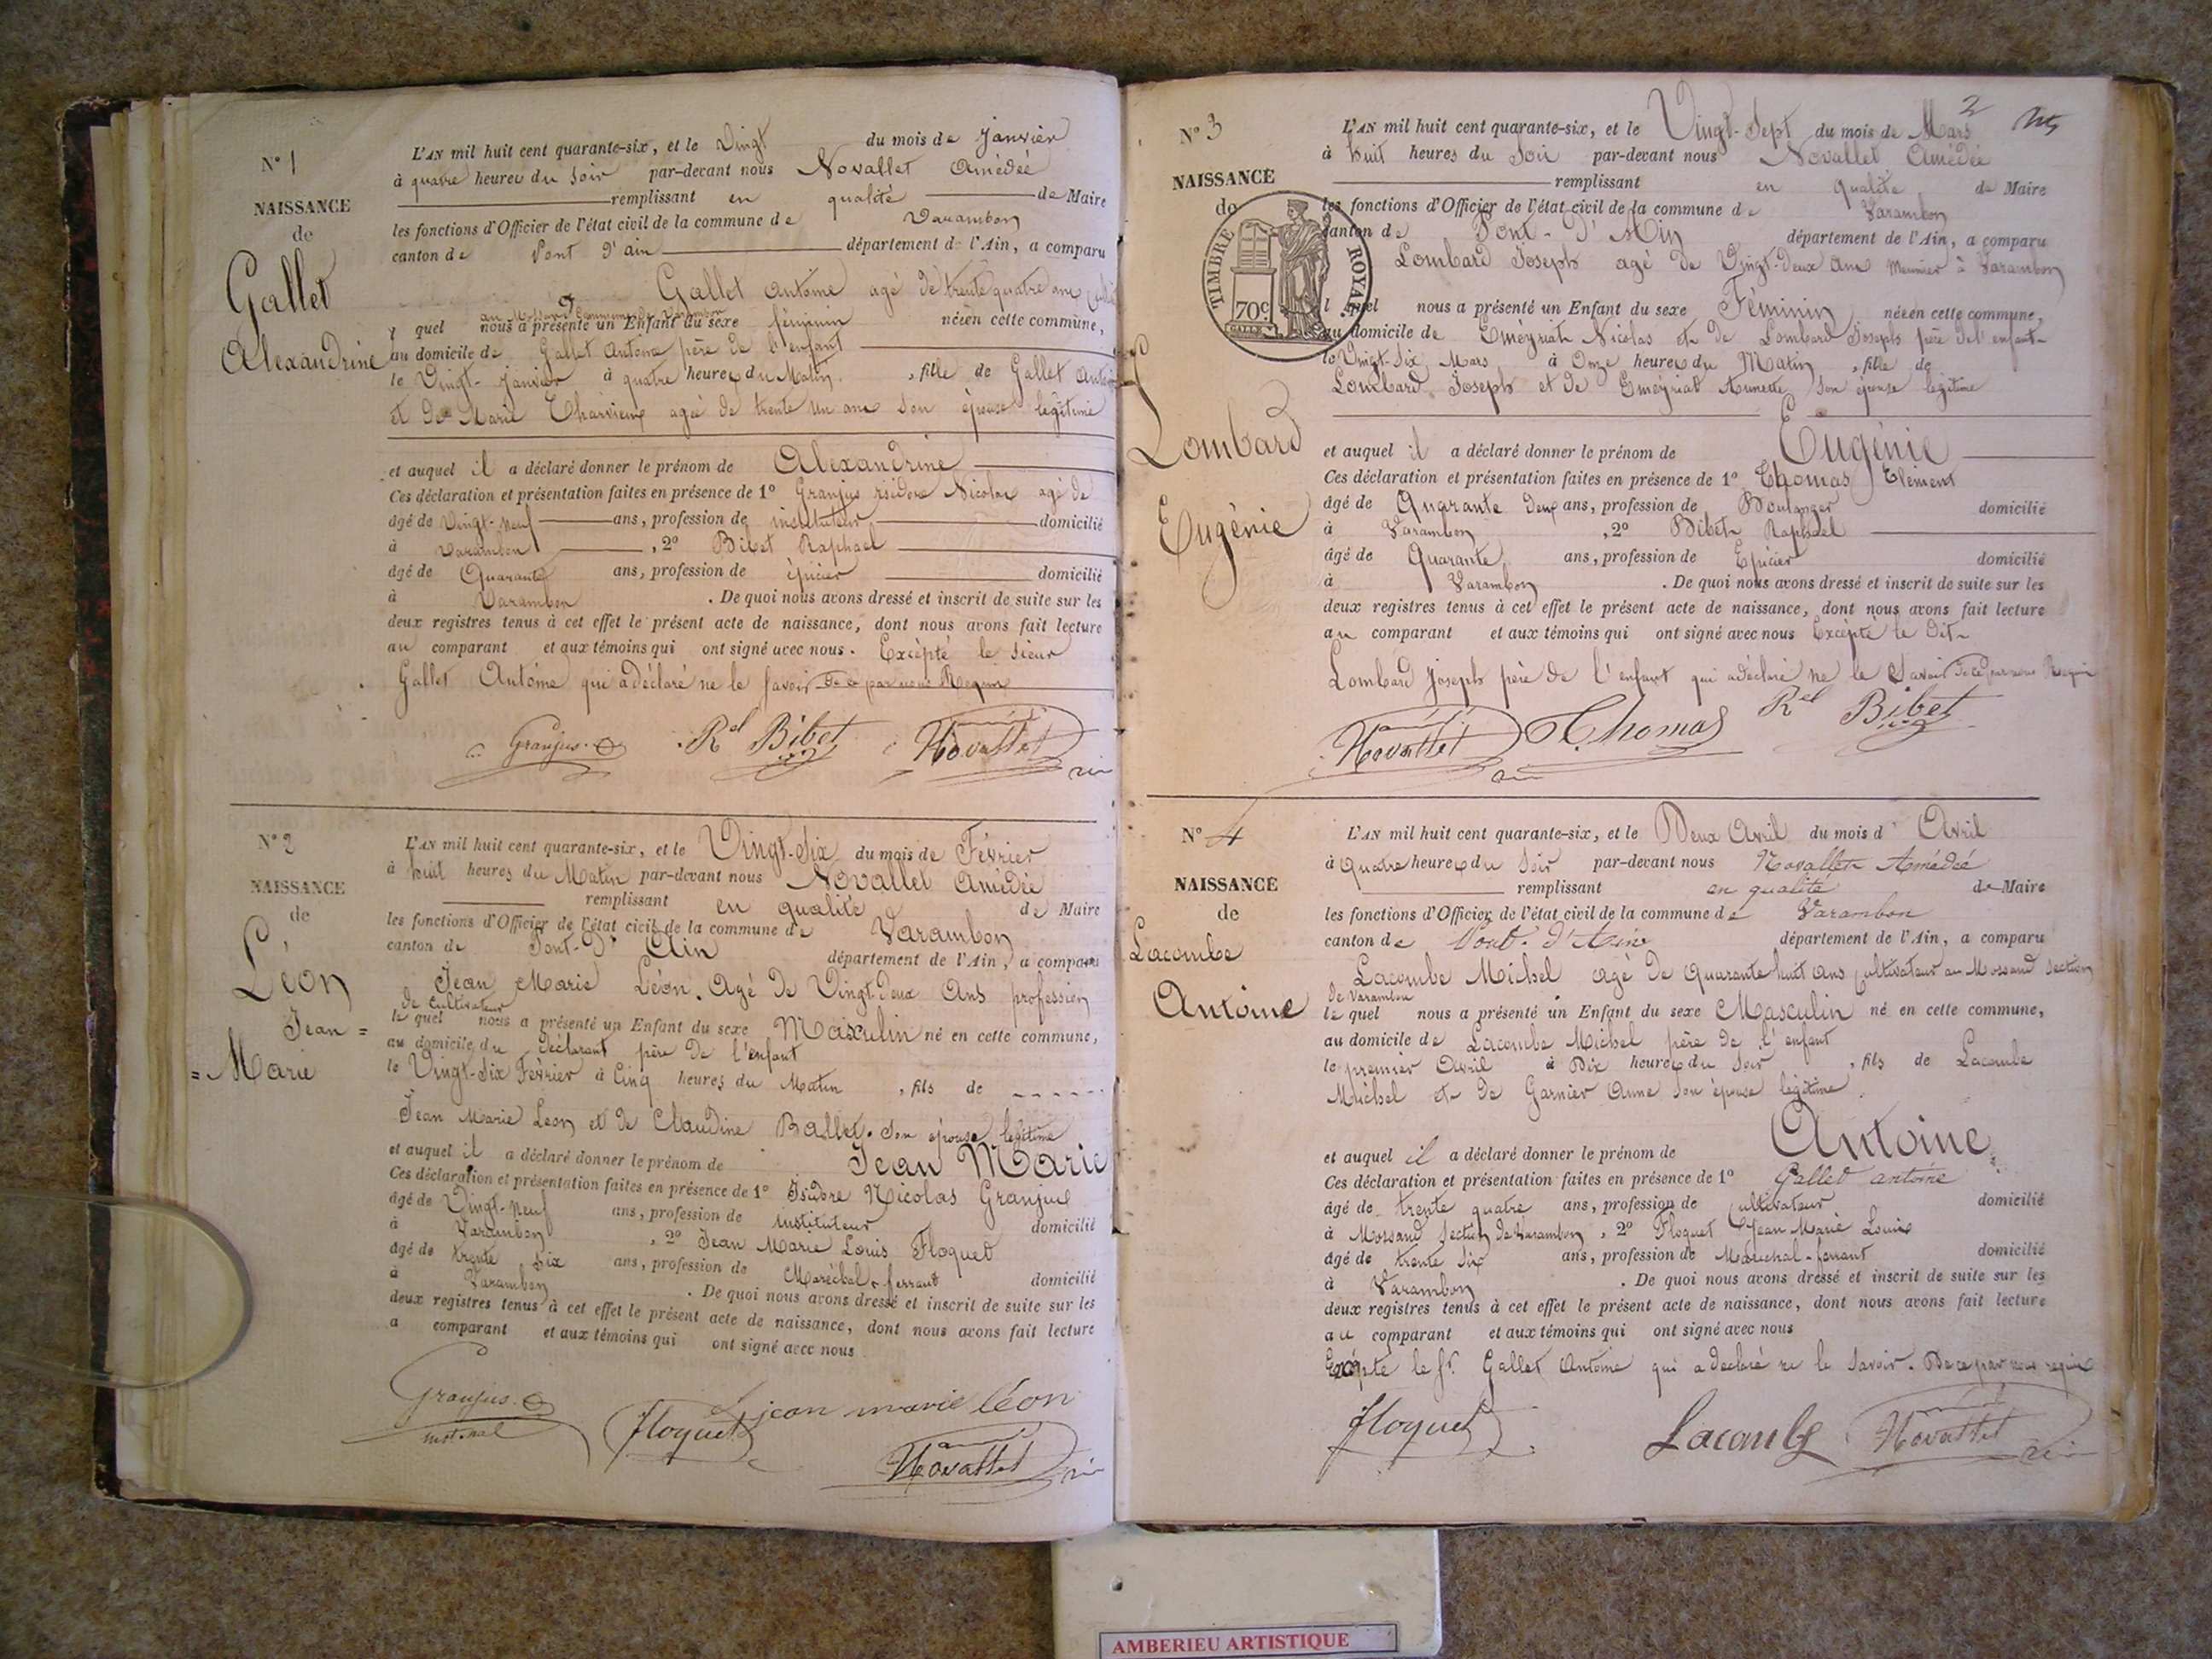 N° 1
NAISSANCE
de
Gallet
Alexandrine
L'AN mil huit cent quarante-six, et le Vingt du mois de janvier
à quatre heures du soir par-devant nous Novallet Amédée
remplissant en qualité de Maire
les fonctions d'Officier de l'état civil de la commune de Varambon
canton de Pont d'ain département de l'Ain, a comparu
Gallet antoine agé de trente quatre ans
au Mossand Commune de Varambon
quel nous a présenté un Enfant du sexe féminin née en cette commune,
au domicile de Gallet Antoine père de l'enfant
le Vingt-janvier à quatre heures du Matin, fille de Gallet Antoine
et de Marie agée de trente un ans son épouse legitime
et auquel il a déclaré donner le prénom de Alexandrine
Ces déclaration et présentation faites en présence de 1° Granjus isidore Nicolas agé de
âgé de Vingt-neuf ans, profession de instituteur domicilié
à Varambon, 2° Bibet Raphael
âgé de Quarante ans, profession de épicier domicilié
à Varambon. De quoi nous avons dressé et inscrit de suite sur les
deux registres tenus à cet effet le présent acte de naissance, dont nous avons fait lecture
au comparant et aux témoins qui ont signé avec nous. Excépté le sieur
Gallet Antoine qui a déclaré ne le savoir de ce par nous Requis
Granjus Rel Bibet Novallet
N° 2
NAISSANCE
de
Léon
Jean =
= Marie
L'AN mil huit cent quarante-six, et le Vingt-Six du mois de Février
à huit heures du Matin par-devant nous Novallet Amédée
remplissant en qualité de Maire
les fonctions d'Officier de l'état civil de la commune de Varambon
canton de Pont-D'Ain département de l'Ain, a comparu
Jean Marie Léon. Agé de Vingt-Deux Ans profession
de Cultivateur
le quel nous a présenté un Enfant du sexe Masculin né en cette commune,
au domicile du déclarant père de l'enfant
le Vingt-Six Février à Cinq heures du Matin, fils de
Jean Marie Leon et de Claudine Ballet. son épouse legitime
et auquel il a déclaré donner le prénom de Jean Marie
Ces déclaration et présentation faites en présence de 1° Isidore Nicolas Granjus
âgé de Vingt-neuf ans, profession de instituteur domicilié
à Varambon, 2° Jean Marie Louis Floquet
âgé de trente six ans, profession de Maréchal-ferrant domicilié
à Varambon. De quoi nous avons dressé et inscrit de suite sur les
deux registres tenus à cet effet le présent acte de naissance, dont nous avons fait lecture
a comparant et aux témoins qui ont signé avec nous
Granjus jean marie léon
Floquet Novallet
2
N° 3
NAISSANCE
de
TIMBRE ROYAL
70c
Lombard
Eugénie
L'AN mil huit cent quarante-six, et le Vingt-Sept du mois de Mars
à huit heures du Soir par-devant nous Novallet Amédée
remplissant en qualité de Maire
les fonctions d'Officier de l'état civil de la commune de Varambon
canton de Pont-D'Ain département de l'Ain, a comparu
Lombard Joseph agé de Vingt-deux ans Meunier à Varambon
l quel nous a présenté un Enfant du sexe Féminin née en cette commune,
au domicile de Emeyriat Nicolas et de Lombard Joseph père de l'enfant
le Vingt-Six Mars à Onze heures du Matin, fille de
Lombard Joseph et de Emeyriat Annette son épouse legitime
et auquel il a déclaré donner le prénom de Eugénie
Ces déclaration et présentation faites en présence de 1° Thomas Clément
âgé de Quarante deux ans, profession de Boulanger domicilié
à Varambon, 2° Bibet Raphael
âgé de Quarante ans, profession de Epicier domicilié
à Varambon. De quoi nous avons dressé et inscrit de suite sur les
deux registres tenus à cet effet le présent acte de naissance, dont nous avons fait lecture
au comparant et aux témoins qui ont signé avec nous Excépté le dit
Lombard Joseph père de l'enfant qui a déclaré ne le Savoir de ce par nous Requis
Novallet Thomas Rel Bibet
N° 4
NAISSANCE
de
Lacombe
Antoine
L'AN mil huit cent quarante-six, et le Deux Avril du mois d' Avril
à Quatre heures du Soir par-devant nous Novallet Amédée
remplissant en qualité de Maire
les fonctions d'Officier de l'état civil de la commune de Varambon
canton de Pont-d'Ain département de l'Ain, a comparu
Lacombe Michel agé de quarante huit ans Cultivateur au Mossand section
de Varambon
le quel nous a présenté un Enfant du sexe Masculin né en cette commune,
au domicile de Lacombe Michel père de l'enfant
le premier Avril à Dix heures du Soir, fils de Lacombe
Michel et de Garnier Anne son épouse légitime
et auquel il a déclaré donner le prénom de Antoine
Ces déclaration et présentation faites en présence de 1° Gallet antoine
âgé de trente quatre ans, profession de Cultivateur domicilié
à Mossand section de Varambon, 2° Floquet Jean Marie Louis
âgé de trente six ans, profession de Maréchal-ferrant domicilié
à Varambon. De quoi nous avons dressé et inscrit de suite sur les
deux registres tenus à cet effet le présent acte de naissance, dont nous avons fait lecture
au comparant et aux témoins qui ont signé avec nous
Excépté le Sr. Gallet Antoine qui a déclaré ne le Savoir. De ce par nous requis
Floquet Lacombe Novallet
AMBERIEU ARTISTIQUE